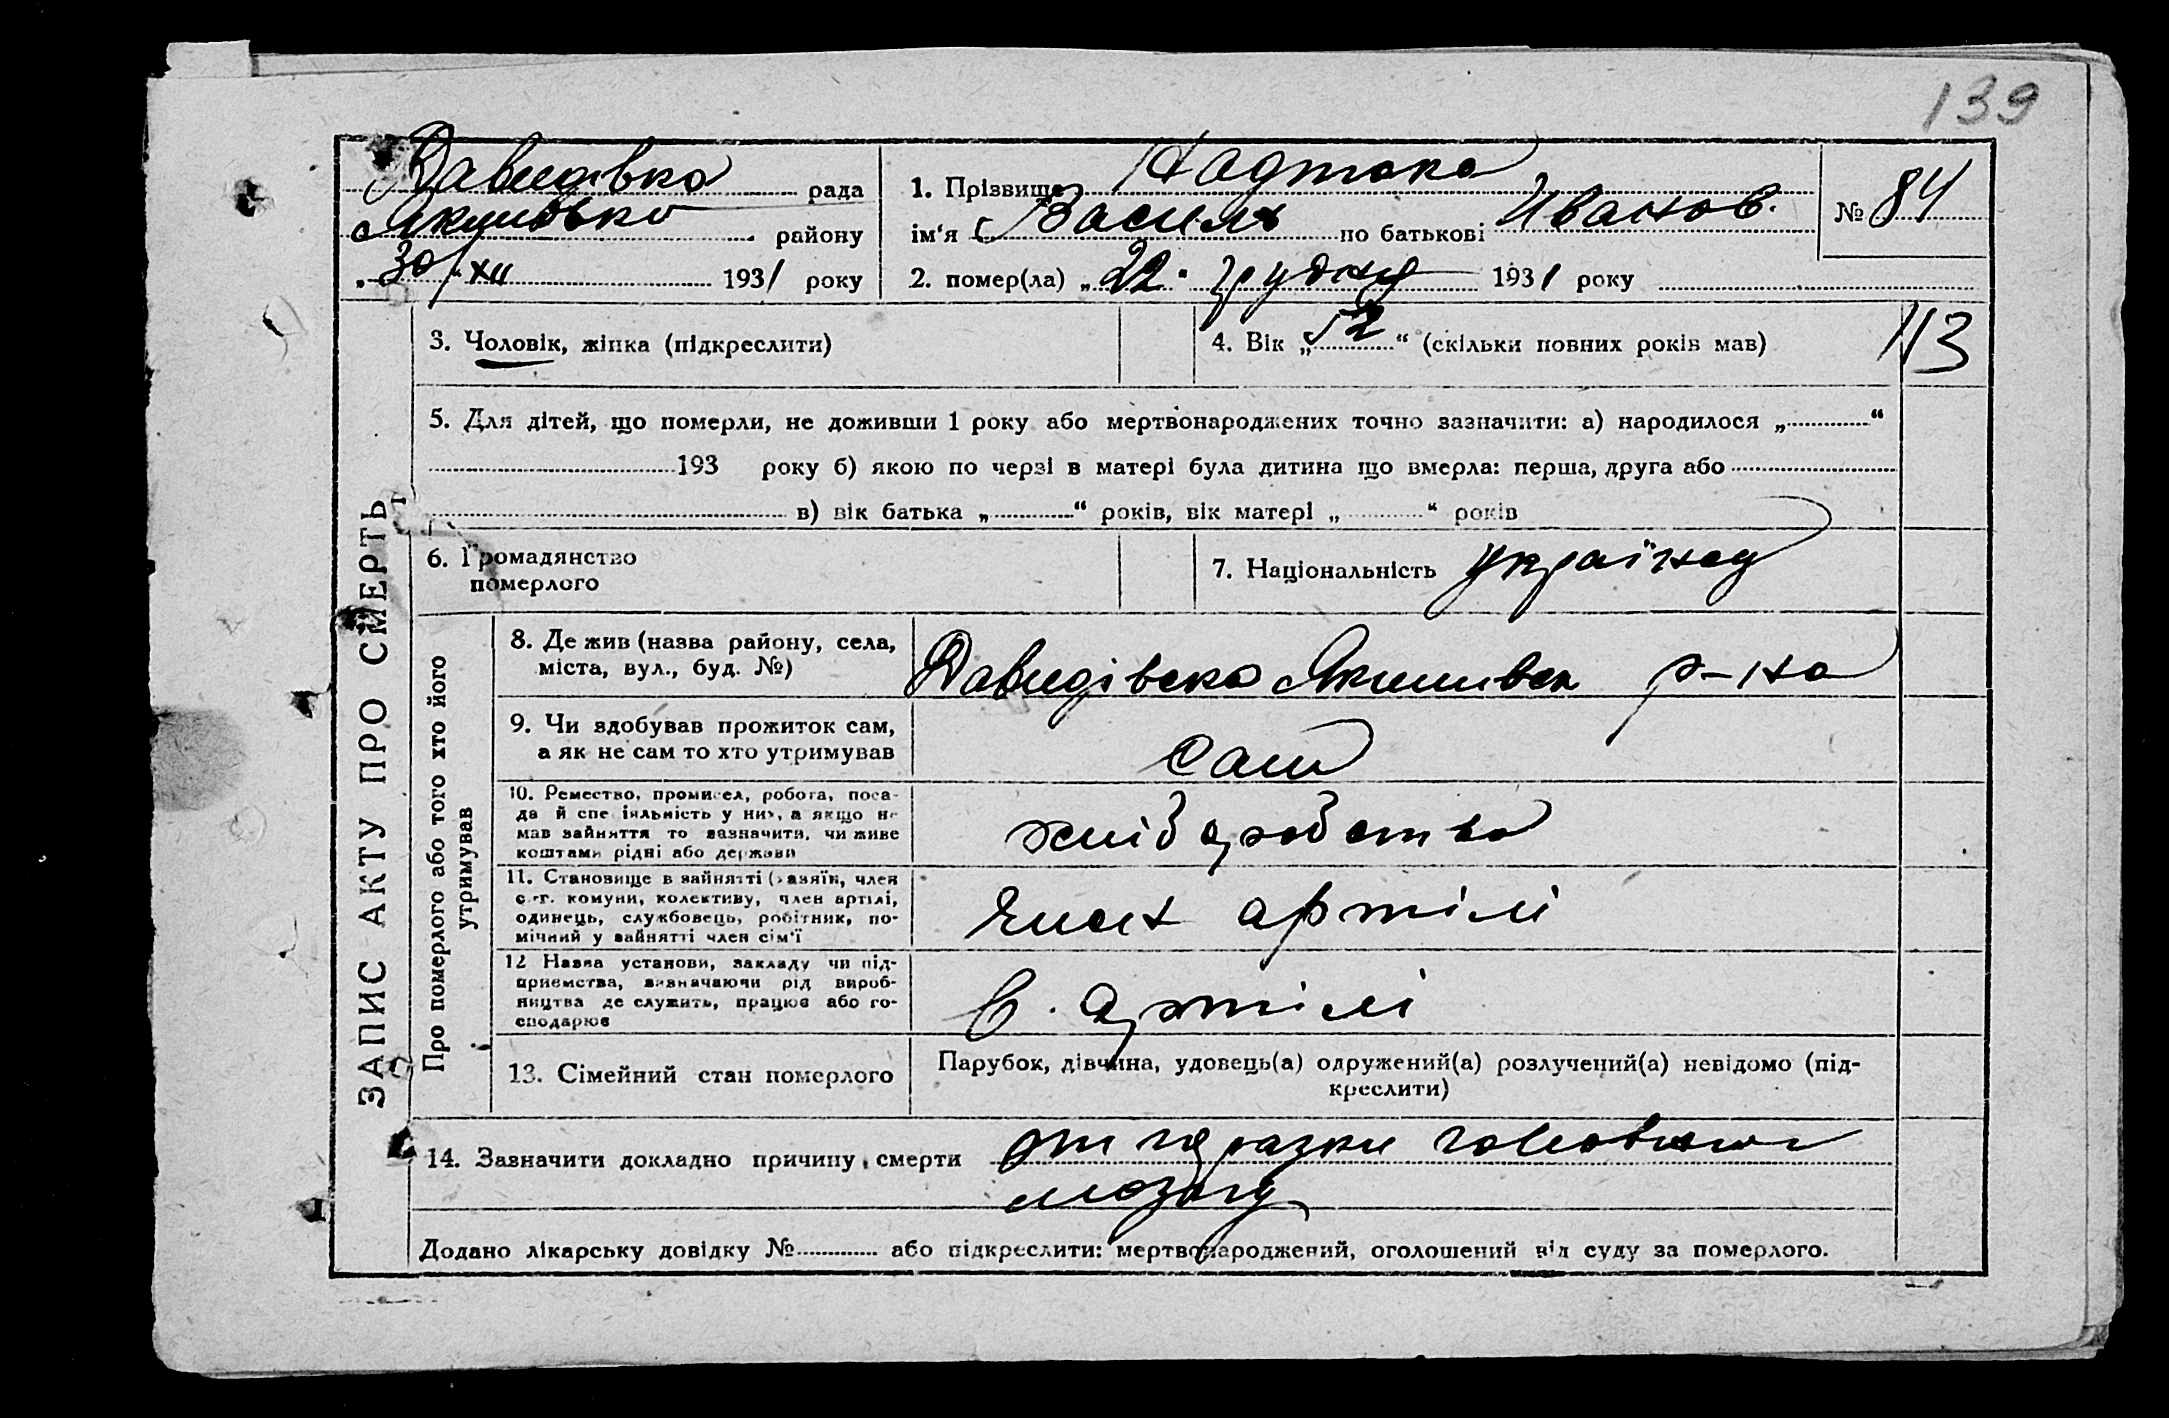 139
Давидівка рада
Якимівько району
„30/“ XII 1931 року
1. Прізвище Надтока
ім'я Василь по батькові Иванов.
2. помер(ла) „22“ грудня 1931 року
№ 84
3. Чоловік, жінка (підкреслити)
4. Вік „52“ (скільки повних років мав)
113
5. Для дітей, що померли, не доживши 1 року або мертвонароджених точно зазначити: а) народилося „ “
193 року б) якою по черзі в матері була дитина що вмерла: перша, друга або
в) вік батька „ “ років, вік матері „ “ років
6. Громадянство
померлого
7. Національність українец
ЗАПИС АКТУ ПРО СМЕРТЬ
Про померлого або того хто його
утримував
8. Де жив (назва району, села,
міста, вул., буд. №)
Давидівка Якимивск р-на
9. Чи здобував прожиток сам,
а як не сам то хто утримував
сам
10. Ремество, промисел, робота, поса-
да й спеціяльність у них, а якщо не
мав зайняття то зазначити, чи живе
коштами рідні або держави
хлібаробство
11. Становище в зайнятті (хазяїн, член
с.-г. комуни, колективу, член артілі,
одинець, службовець, робітник, по-
мічний у зайнятті член сім'ї
член артілі
12 Назва установи, закладу чи під-
приємства, визначаючи рід вироб-
ництва де служить, працює або го-
сподарює
в. артілі
13. Сімейний стан померлого
Парубок, дівчина, удовець(а) одружений(а) розлучений(а) невідомо (під-
креслити)
14. Зазначити докладно причину смерти
мозгу
Додано лікарську довідку № або підкреслити: мертвонароджений, оголошений від суду за померлого.